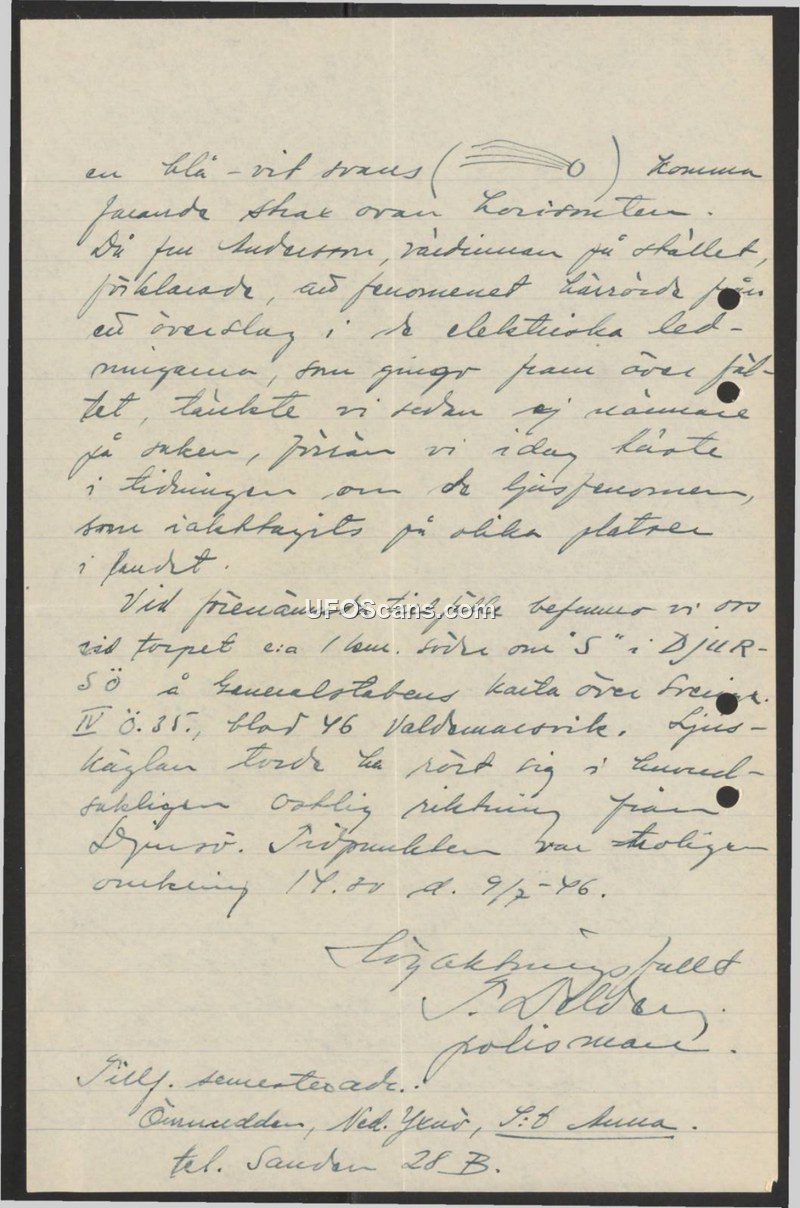 en blå-vit svans ( ) komma
farande strax ovan horisonten.
Då fru Andersson, värdinnan på stället,
förklarade, att fenomenet härrörde från
ett överslag i de elektriska led-
ningarna, som gingo fram över fäl-
tet, tänkte vi sedan ej närmare
på saken, förrän vi idag läste
i tidningen om de ljusfenomen,
som iakttagits på olika platser
i landet.
Vid förenämnda tillfälle befunno vi oss
vid torpet c:a 1 km. söder om "S" i DJUR-
SÖ å Generalstabens karta över Sverige.
IV Ö. 35., blad 46 Valdemarsvik. Ljus-
käglan torde ha rört sig i huvud-
sakligen ostlig riktning från
Djursö. Tidpunkten var troligen
omkring 14.30 d. 9/7-46.
Högaktningsfullt
polisman.
Tillf. semesteradr.:
Ned. Yxnö, S:t Anna.
tel. Sanden 28 B.
UFOScans.com